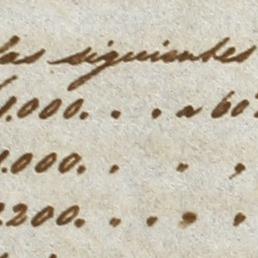 las siguientes
1.000. . . a 60
1.000. . . .
2.200. . . . .